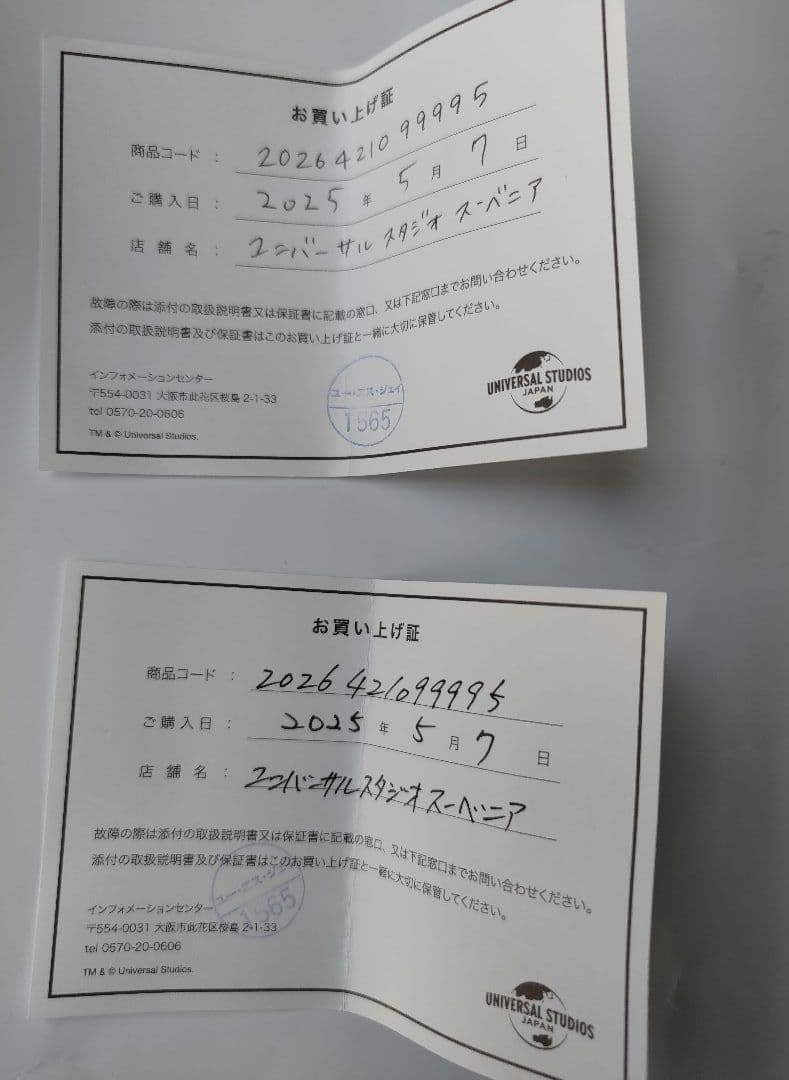 お買い上げ証
商品コード : 2026421099995
ご購入日 : 2025 年 5 月 7 日
店舗名 : ユニバーサル スタジオ スーベニア
故障の際は添付の取扱説明書又は保証書に記載の窓口、又は下記窓口までお問い合わせください。
添付の取扱説明書及び保証書はこのお買い上げ証と一緒に大切に保管してください。
インフォメーションセンター
〒554-0031 大阪市此花区桜島 2-1-33
tel 0570-20-0606
TM & © Universal Studios.
ユー・エス・ジェイ
1565
UNIVERSAL STUDIOS
JAPAN
お買い上げ証
商品コード : 2026421099995
ご購入日 : 2025 年 5 月 7 日
店舗名 : ユニバーサルスタジオスーベニア
故障の際は添付の取扱説明書又は保証書に記載の窓口、又は下記窓口までお問い合わせください。
添付の取扱説明書及び保証書はこのお買い上げ証と一緒に大切に保管してください。
ユー・エス・ジェイ
1565
インフォメーションセンター
〒554-0031 大阪市此花区桜島 2-1-33
tel 0570-20-0606
TM & © Universal Studios.
UNIVERSAL STUDIOS
JAPAN